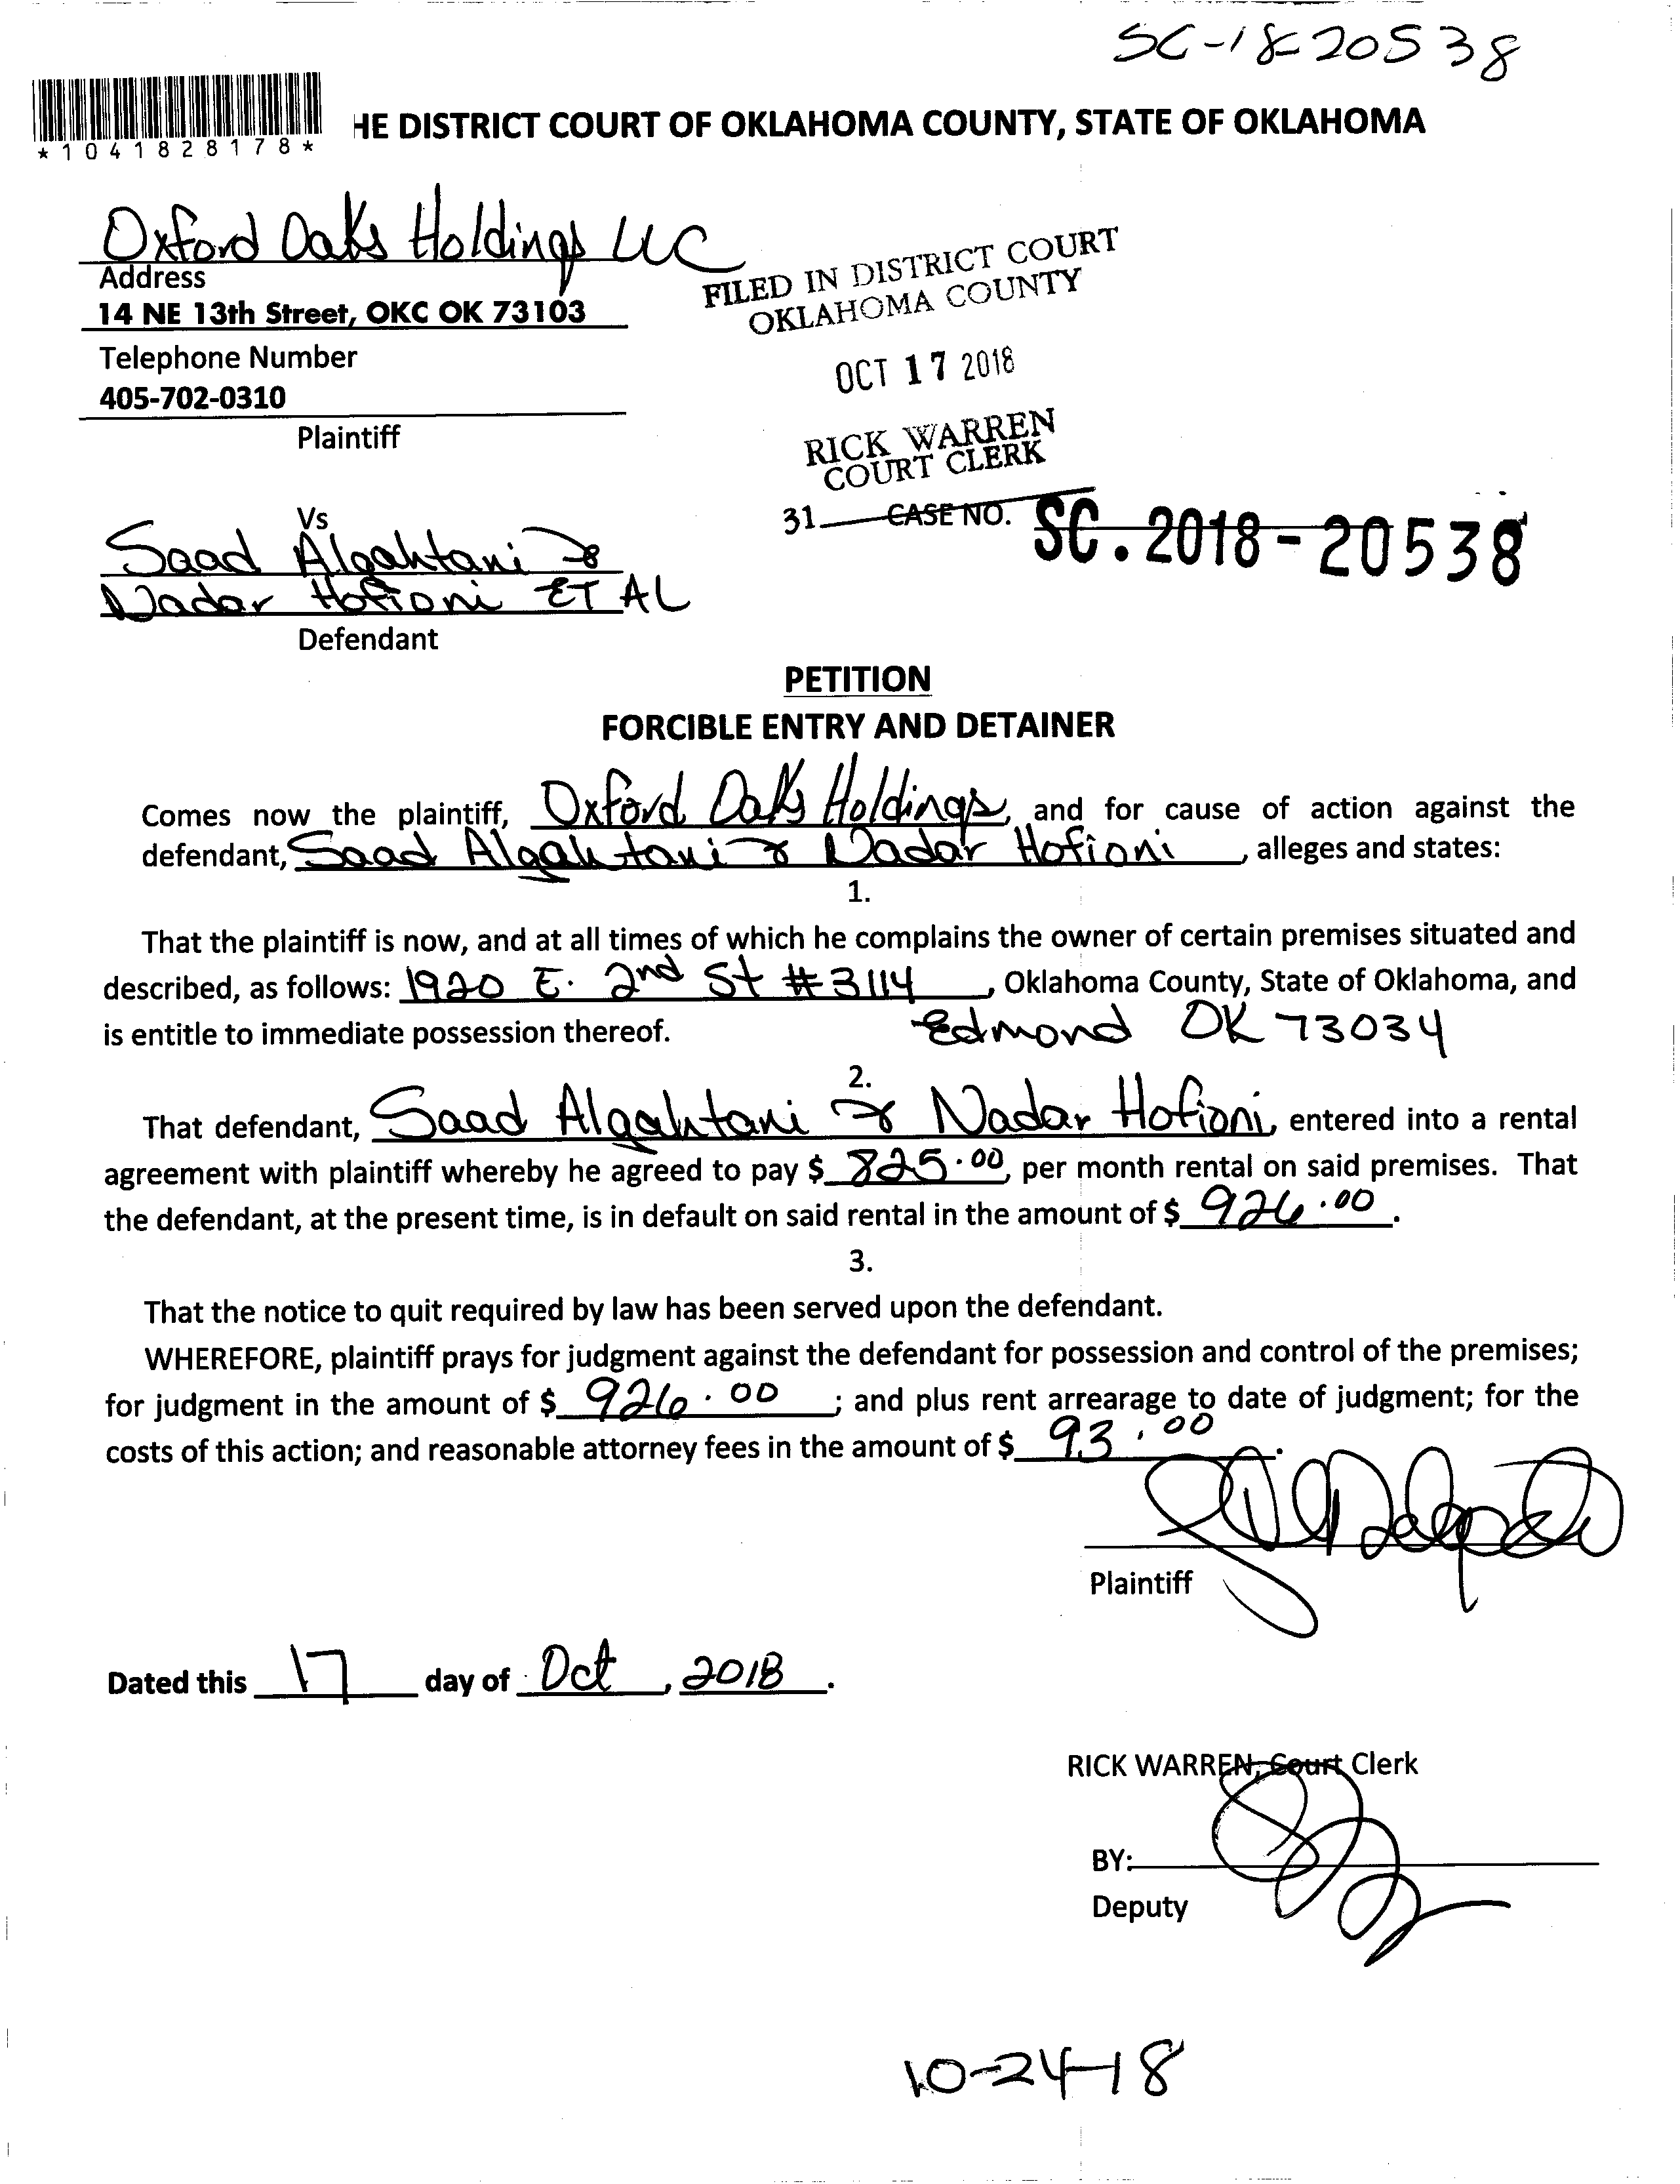 SC-18-20538
*1041828178*
HE DISTRICT COURT OF OKLAHOMA COUNTY, STATE OF OKLAHOMA
Oxford Oaks Holdings LLC
Address
14 NE 13th Street, OKC OK 73103
Telephone Number
405-702-0310
Plaintiff
FILED IN DISTRICT COURT
OKLAHOMA COUNTY
OCT 17 2018
RICK WARREN
COURT CLERK
31 CASE NO. SC.2018-20538
Vs
Saad Algahtani &
Nadar Hofioni ET AL
Defendant
PETITION
FORCIBLE ENTRY AND DETAINER
Comes now the plaintiff, Oxford Oaks Holdings, and for cause of action against the
defendant, Saad Algahtani & Nadar Hofioni, alleges and states:
1.
That the plaintiff is now, and at all times of which he complains the owner of certain premises situated and
described, as follows: 1920 E. 2nd St #3114, Oklahoma County, State of Oklahoma, and
is entitle to immediate possession thereof. Edmond OK 73034
2.
That defendant, Saad Algahtani & Nadar Hofioni, entered into a rental
agreement with plaintiff whereby he agreed to pay $ 825.00, per month rental on said premises. That
the defendant, at the present time, is in default on said rental in the amount of $ 926.00.
3.
That the notice to quit required by law has been served upon the defendant.
WHEREFORE, plaintiff prays for judgment against the defendant for possession and control of the premises;
for judgment in the amount of $ 926.00; and plus rent arrearage to date of judgment; for the
costs of this action; and reasonable attorney fees in the amount of $ 93.00.
Plaintiff
Dated this 17 day of Oct, 2018.
RICK WARREN, Court Clerk
BY:
Deputy
10-24-18